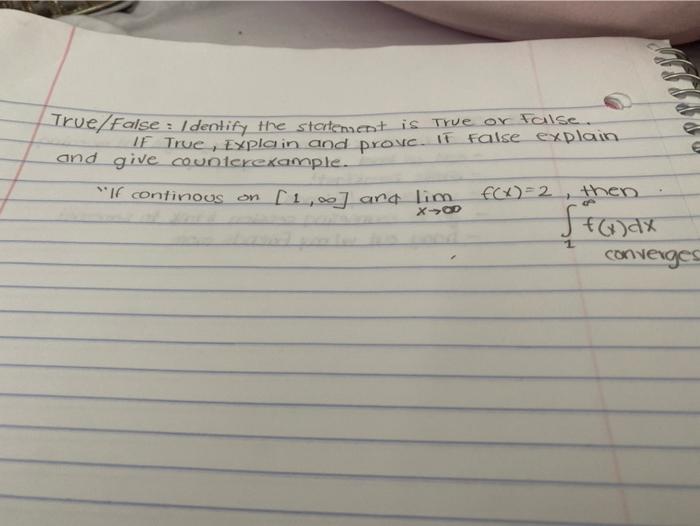 True/False: Identify the statement is True or False.
IF True, Explain and prove. IF False explain
and give counterexample.
"If continous on [1,∞] and lim x→∞ f(x)=2, then
∫₁^∞ f(x)dx
converges